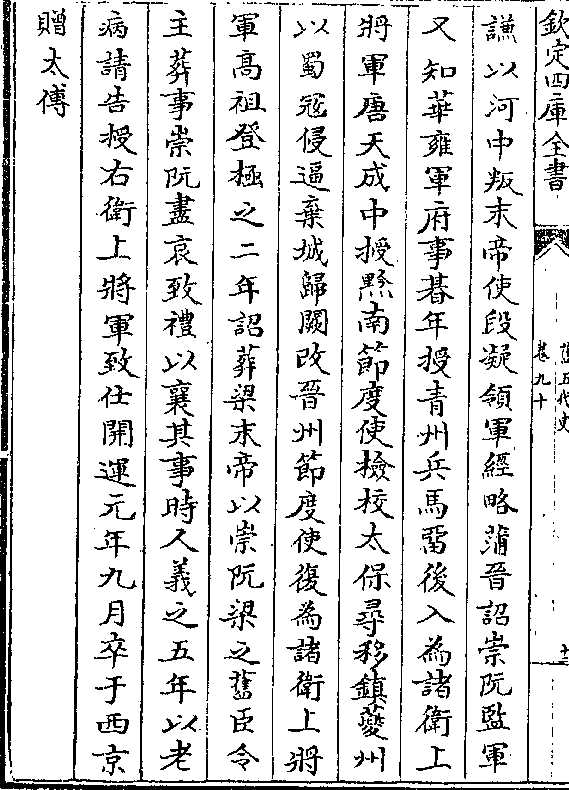 欽定四庫全書
舊五代史
卷九十
十三
謙以河中叛末帝使段凝領軍經略蒲晉詔崇阮監軍
又知華雍軍府事朞年授青州兵馬畱後入為諸衛上
將軍唐天成中授黔南節度使檢校太保尋移鎮夔州
以蜀冦侵逼棄城歸闕改晉州節度使復為諸衛上將
軍高祖登極之二年詔葬梁末帝以崇阮梁之舊臣令
主葬事崇阮盡哀致禮以襄其事時人義之五年以老
病請告授右衛上將軍致仕開運元年九月卒于西京
贈太傅